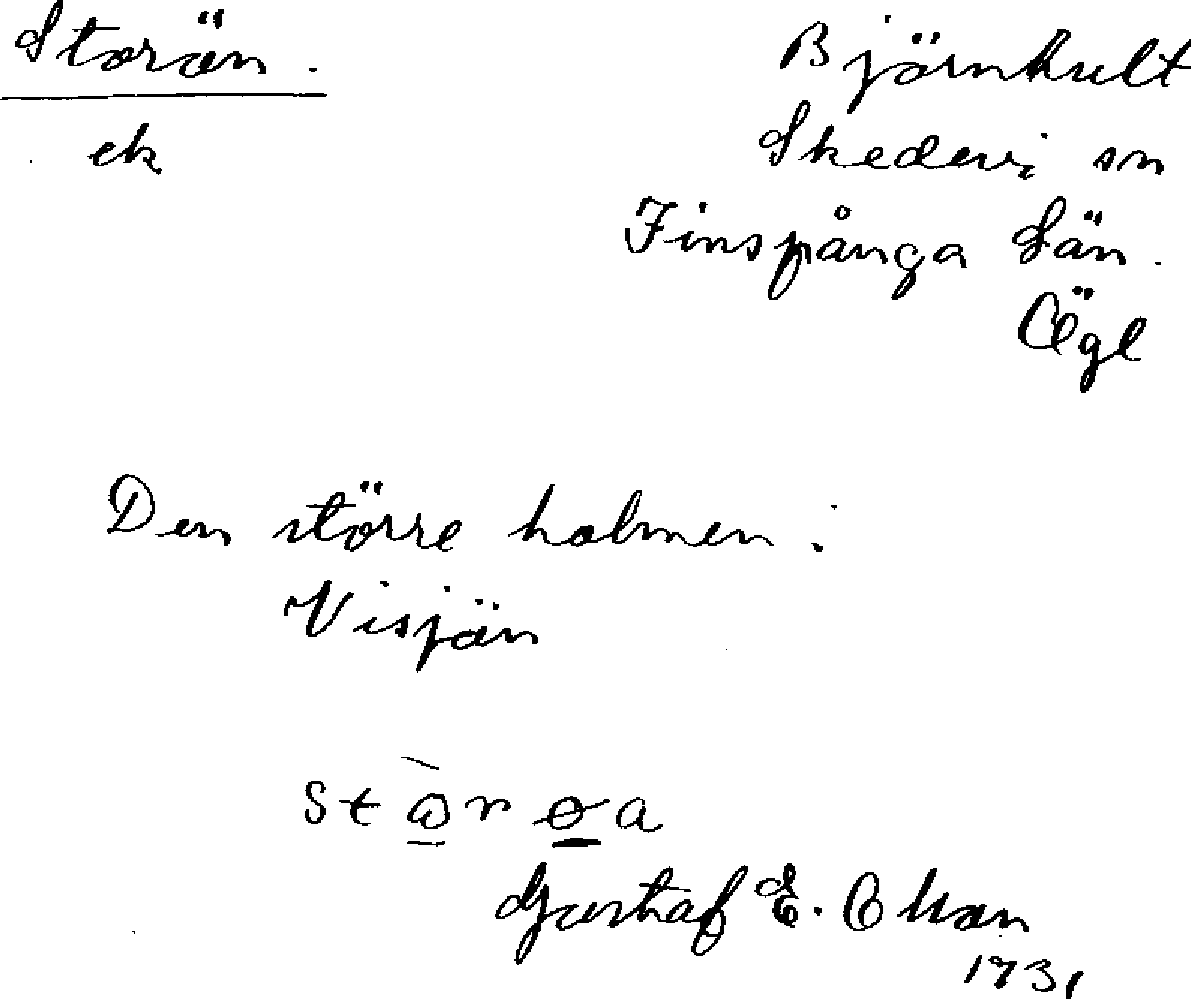 Storön.
ek
Björnhult
Skedevi sn
Finspånga Län.
Ögl
Den större holmen i
Visjön
Gustaf E. Olson
1931